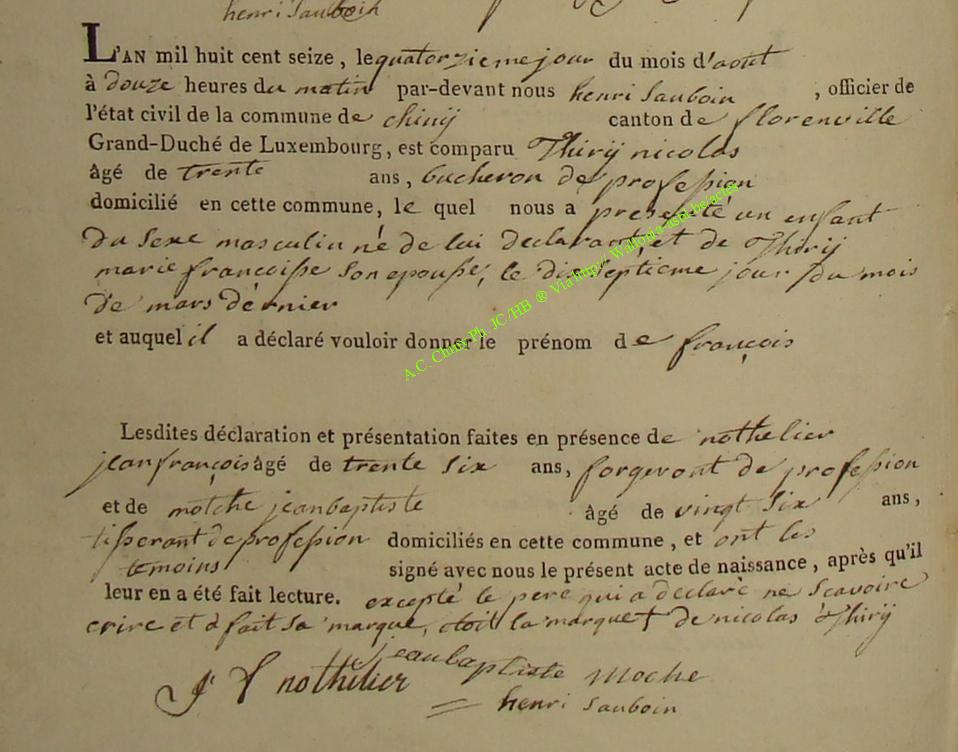 henri Sauboin
L'AN mil huit cent seize, le quatorzieme jour du mois d'aout
à douze heures du matin par-devant nous henri Sauboin , officier de
l'état civil de la commune de chinij canton de florenville
Grand-Duché de Luxembourg, est comparu Thirij nicolas
âgé de trente ans, bucheron de profession
domicilié en cette commune, le quel nous a présenté un enfant
du sexe masculin né de lui declarant, et de Thirij
marie francoisse son epousse, le dix septieme jour du mois
de mars dérnier
et auquel il a déclaré vouloir donner le prénom de françois
A.C. Chiny Ph JC/HB ® Via http:// Wallonia-asbl-be/actes
Lesdites déclaration et présentation faites en présence de nothelier
jean françois âgé de trente six ans, forgeront de profession
et de motche jean baptiste âgé de vingt six ans,
tisserant de profession domiciliés en cette commune, et ont les
temoins signé avec nous le présent acte de naissance, après qu'il
leur en a été fait lecture. excepté le pere qui a déclaré ne scavoire
crire et a fait sa marque, la marque + de nicolas Thirij
J f nothelier jean baptiste Moche
henri Sauboin